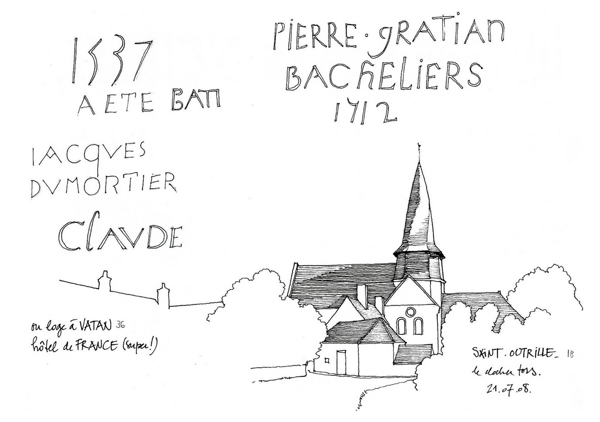 1537
A ETE BATI
PIERRE · GRATIAN
BACHELIERS
1712
IACQVES
DVMORTIER
CLAVDE
on loge à VATAN 36
hôtel de FRANCE (super!)
SAINT-OUTRILLE_ 18
le clocher tors.
21.07.08.